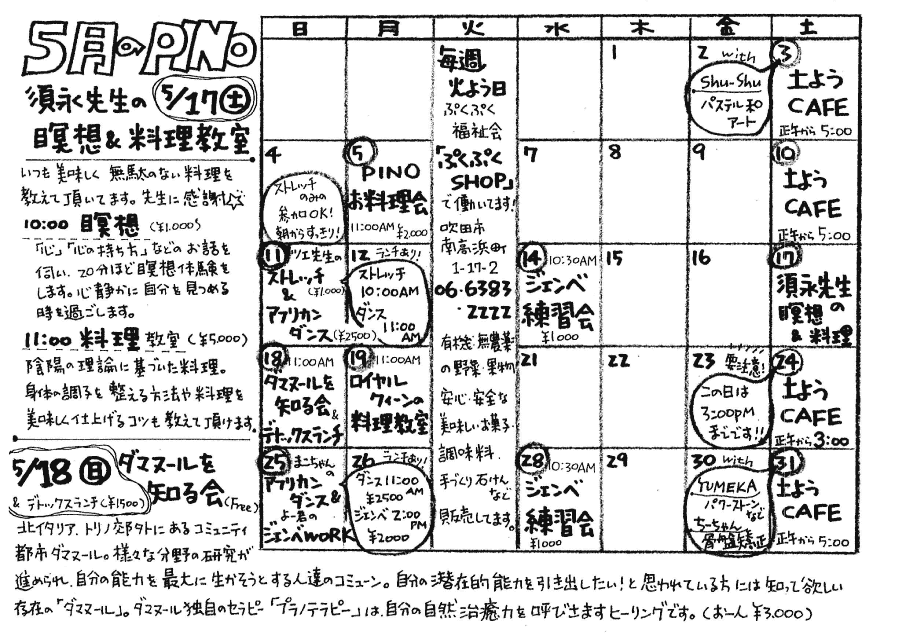 5月のPINO
須永先生の 5/17(土)
瞑想&料理教室
いつも美味しく 無駄のない料理を
教えて頂いてます。先生に感謝☆
10:00 瞑想 (¥1,000)
「心」「心の持ち方」などのお話を
伺い、20分ほど瞑想体験を
します。心静かに自分を見つめる
時を過ごします。
11:00 料理教室 (¥5,000)
陰陽の理論に基づいた料理。
身体の調子を整える方法や料理を
美味しく仕上げるコツも教えて頂けます。
5/18(日) ダマヌールを
知る会(Free)
& デトックスランチ(¥1500)
北イタリア、トリノ郊外にあるコミュニティ
都市ダマヌール。様々な分野の研究が
進められ、自分の能力を最大に生かそうとする人達のコミューン。自分の潜在的能力を引き出したい!と思われている方には知って欲しい
存在の「ダマヌール」。ダマヌール独自のセラピー「プラノテラピー」は、自分の自然治癒力を呼びさますヒーリングです。(お一人 ¥3,000)
日 月 火 水 木 金 土
毎週
火よう日
ぷくぷく
福祉会
「ぷくぷく
SHOP」
で働いてます!
吹田市
南高浜町
1-17-2
06-6383
-2222
有機・無農薬
の野菜・果物
安心・安全な
美味しいお菓子
調味料、
手づくり石けん
など
販売してます。
1
2 with
Shu-Shu
パステル和
アート
3
土よう
CAFE
正午から5:00
4
ストレッチ
のみの
参加OK!
朝からすっきり!
5
PINO
お料理会
11:00AM ¥2,000
7
8
9
10
土よう
CAFE
正午から5:00
11
ツエ先生の
ストレッチ
& (¥1,000)
アフリカン
ダンス(¥2500)
12 ランチあり!
ストレッチ
10:00AM
ダンス
11:00
AM
14 10:30AM
ジェンベ
練習会
¥1000
15
16
17
須永先生
の
瞑想
& 料理
18 11:00AM
ダマヌールを
知る会&
デトックスランチ
19 11:00AM
ロイヤル
クィーンの
料理教室
21
22
23 要注意!
この日は
3:00PM
までです!!
24
土よう
CAFE
正午から3:00
25 まこちゃん
の
アフリカン
ダンス&
よー君の
ジェンベWORK
26 ランチあり!
ダンス11:00
AM
¥2500
ジェンベ2:00
PM
¥2000
28 10:30AM
ジェンベ
練習会
¥1000
29
30 with
YUMEKA
パワーストーン
など
ちーちゃん
骨盤矯正
31
土よう
CAFE
正午から5:00